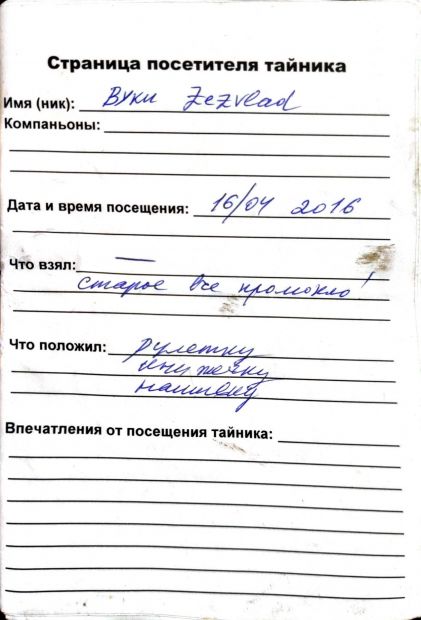 Страница посетителя тайника
Имя (ник): Вуки ZeZvlad
Компаньоны:
Дата и время посещения: 16/04 2016
Что взял: —
старое все промокло!
Что положил: рулетку
книжечку
нашивку
Впечатления от посещения тайника: